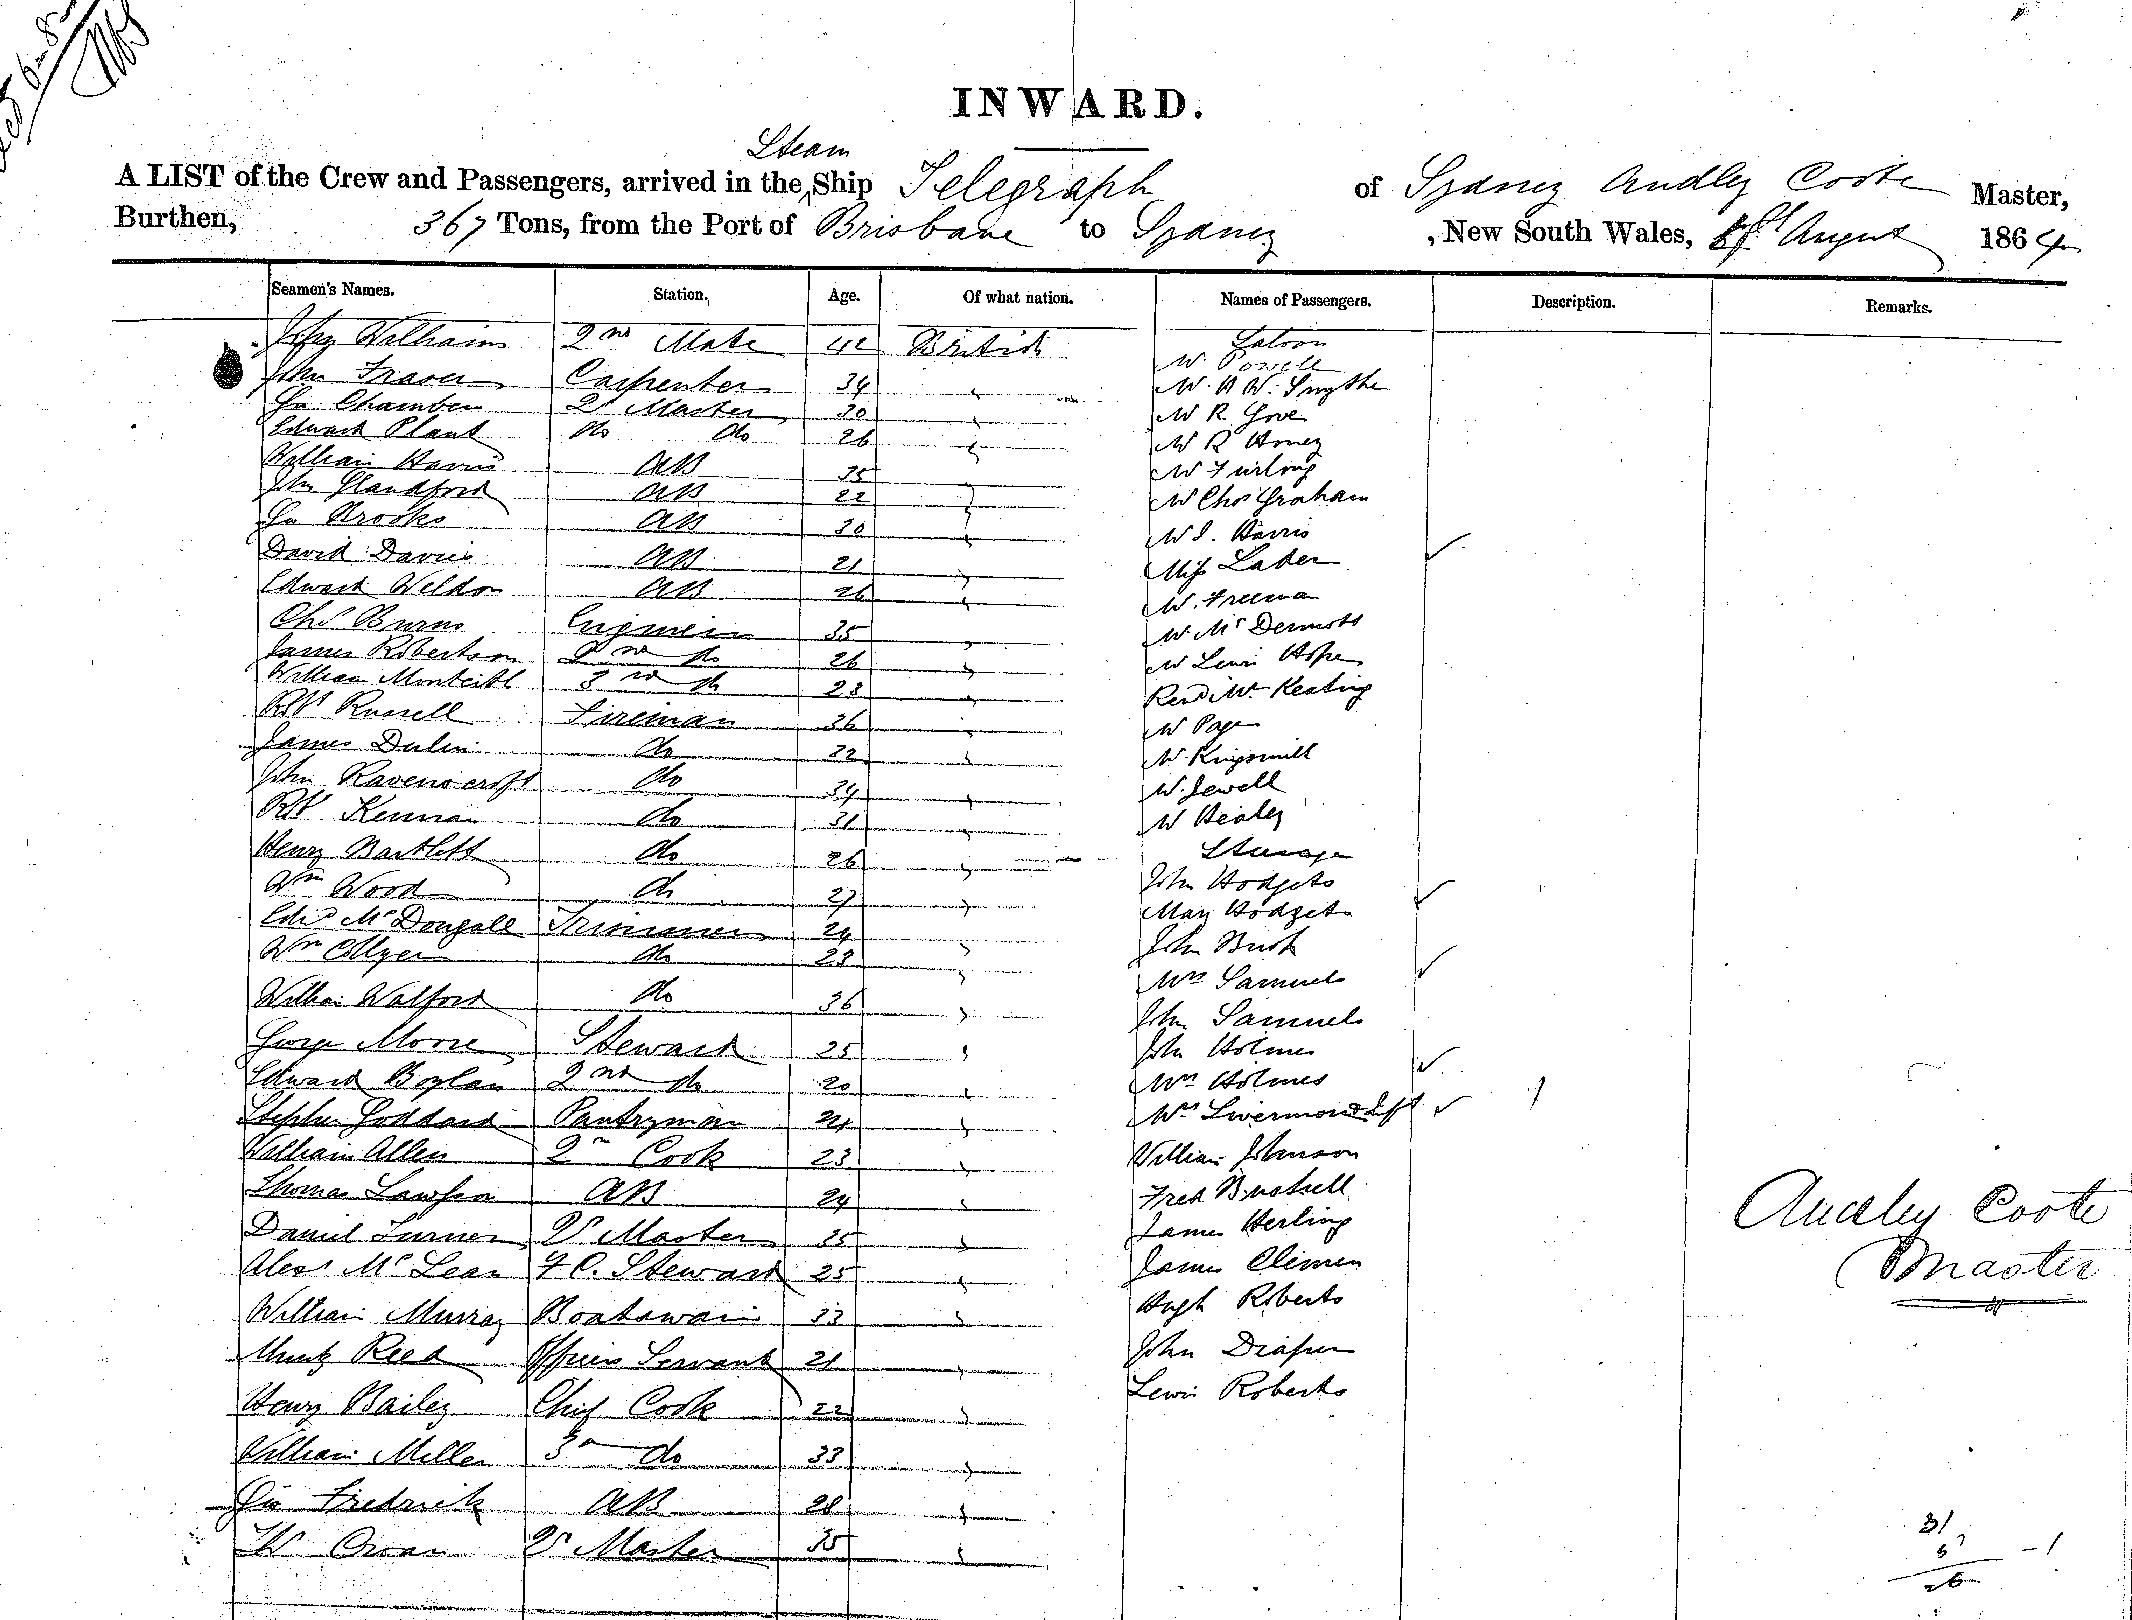 INWARD.
Steam
A LIST of the Crew and Passengers, arrived in the Ship Telegraph of Sydney Audley Coote Master,
Burthen, 367 Tons, from the Port of Brisbane to Sydney, New South Wales, August 1864
Seamen's Names. Station. Age. Of what nation. Names of Passengers. Description. Remarks.
Williams 2nd Mate 42 British Saloon
W. Powell
John Fraser Carpenter 34 " W. H W. Smythe
Chamber Qr Master 30 " W R Gove
Edward Plant do do 26 " W R Honey
William Harris AB 35 " W Furlong
John Glandford AB 22 " W Chs Graham
Brooks AB 30 " W J. Harris
David Davies AB 21 " Miss Lader
Edward Weldon AB 26 " W. Freeman
Chs Burns Engineer 35 " W McDermott
James Robertson 2nd do 26 " W Lewis Hope
William Monteith 3rd do 23 " Revd Mr Keating
Robt Russell Fireman 36 " W Page
James Dulin do 32 " W Kingsmill
John Ravenscroft do 34 " W. Jewell
Robt Kennan do 31 " W Healey
Henry Bartlett do 26 " Steerage
Wm Wood do 27 " John Hodgets
Edwd McDougall Trimmer 24 " Mary Hodgets
Wm Collyer do 23 " John Bush
Mrs Samuels
William Walford do 36 " John Samuels
George Moore Steward 25 " John Holmes
Edward Boylan 2nd do 20 " Mrs Holmes
Stephen Goddard Pantryman 24 " Mrs Livermore & Inft
William Allen 2nd Cook 23 " William Johnson
Thomas Lawson AB 24 " Fred Bushell
Daniel Turner Qr Master 35 " James Herling
Alexr McLean F C. Steward 25 " James Climen
William Murray Boatswain 33 " Hugh Roberts
Reed Officers Servant 21 " John Draper
Henry Bailey Chief Cook 22 " Lewis Roberts
William Miller 3rd do 33 "
Frederick AB 28 "
Qr Master 35 "
Audley Coote
Master
31
5
26